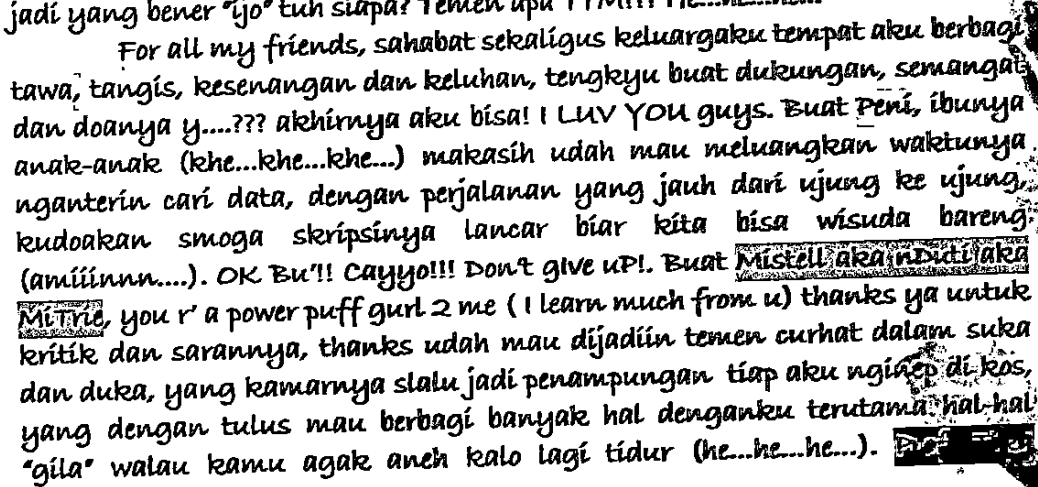 jadi yang bener "ijo" tuh siapa? Temen apa TTM!!!
For all my friends, sahabat sekaligus keluargaku tempat aku berbagi
tawa, tangis, kesenangan dan keluhan, tengkyu buat dukungan, semangat
dan doanya y....??? akhirnya aku bisa! I LUV YOU guys. Buat Peni, ibunya
anak-anak (khe...khe...khe...) makasih udah mau meluangkan waktunya
nganterin cari data, dengan perjalanan yang jauh dari ujung ke ujung,
kudoakan smoga skripsinya lancar biar kita bisa wisuda bareng
(amiiinnn....). OK Bu'!! Cayyo!!! Don't gIve uP!. Buat Mistell aka nDuti aka
MiTrie, you r' a power puff gurl 2 me ( I learn much from u) thanks ya untuk
kritik dan sarannya, thanks udah mau dijadiin temen curhat dalam suka
dan duka, yang kamarnya slalu jadi penampungan tiap aku nginep di kos,
yang dengan tulus mau berbagi banyak hal denganku terutama hal-hal
"gila" walau kamu agak aneh kalo lagi tidur (he...he...he...).